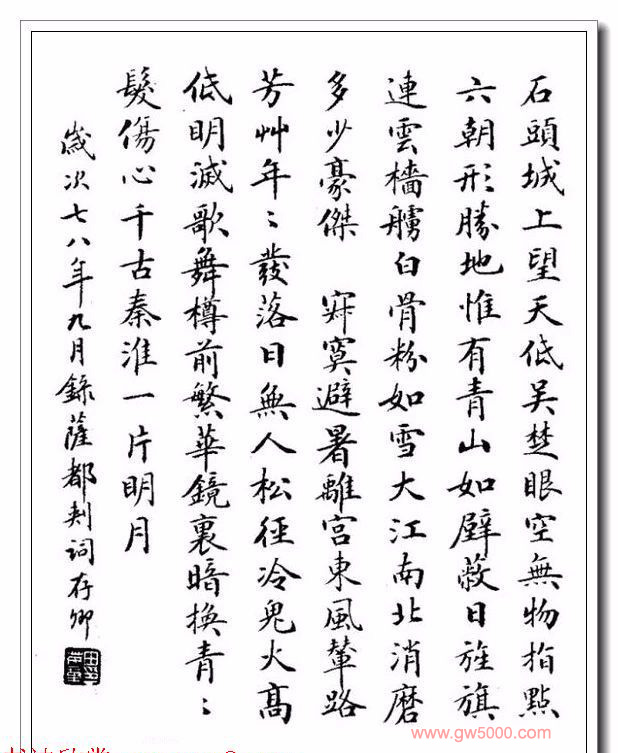 石頭城上望天低吴楚眼空無物指點
六朝形勝地惟有青山如壁蔽日旌旗
連雲檣艣白骨粉如雪大江南北消磨
多少豪傑 寂寞避暑離宮東風輦路
芳艸年〻發落日無人松徑冷鬼火高
低明滅歌舞樽前繁華鏡裏暗換青〻
髮傷心千古秦淮一片明月
歲次七八年九月錄薩都剌詞存卿
www.gw5000.com